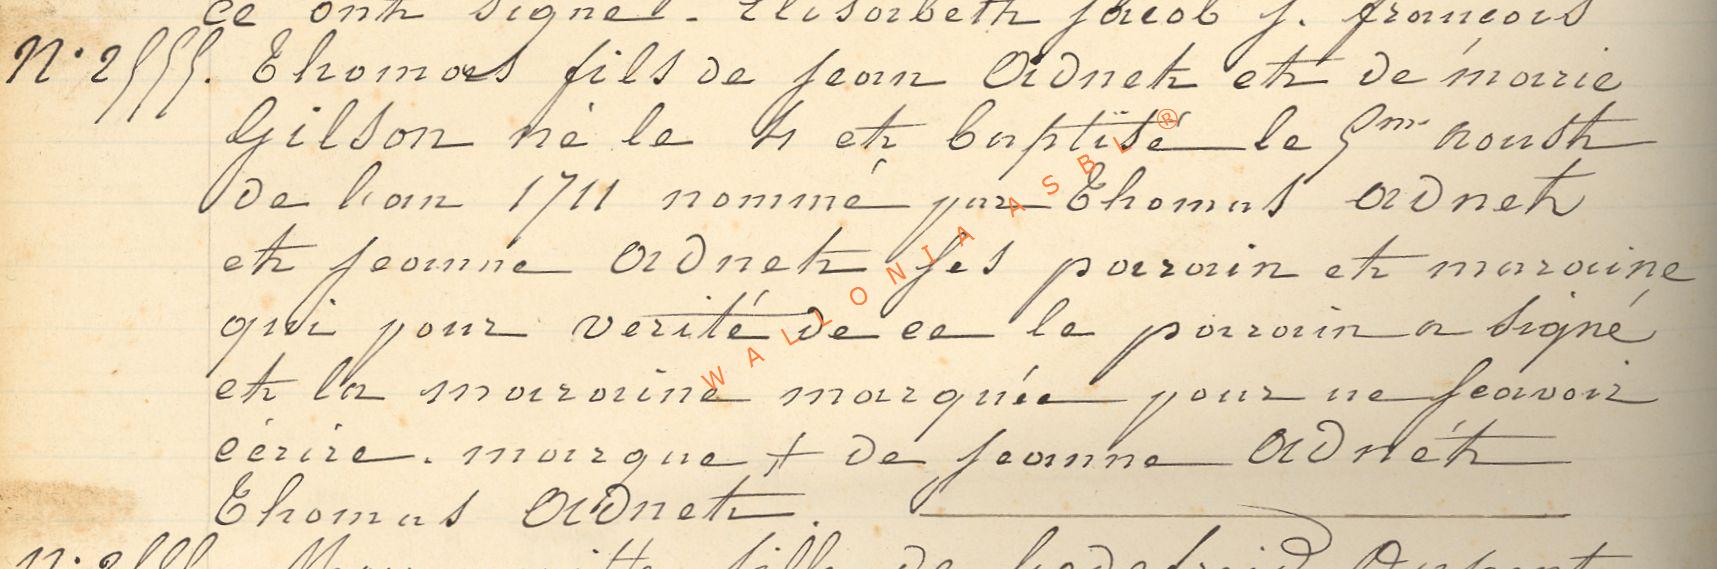 ce ont signé. Elisabeth jacob j. françois
N.° 2555. Thomas fils de jean Adnet et de marie
Gilson né le 4 et baptisé le 5me aoust
de l'an 1711 nommé par Thomas Adnet
et jeanne Adnet ses parain et maraine
qui pour verité de ce le parain a signé
et la maraine marquée pour ne scavoir
eérire. marque + de jeanne Adnét
Thomas Adnet
fille de Godefroid Dupont
WALLONIA ASBL ®